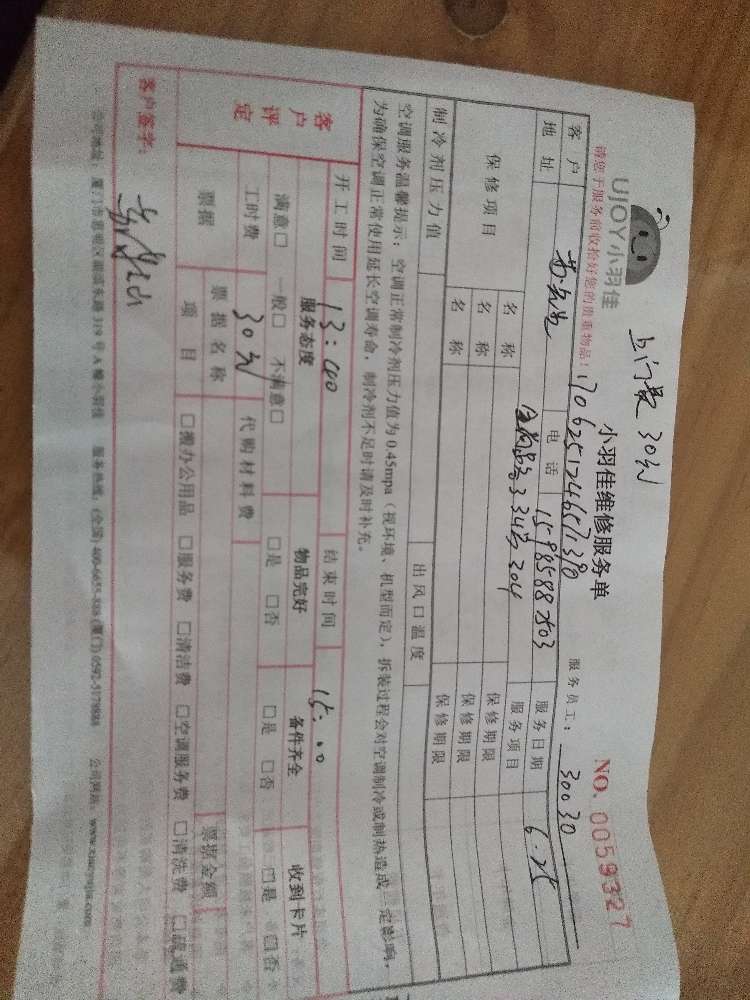 UJOY小羽佳
上门费 30元
小羽佳维修服务单
NO. 0059327
请您于服务前收拾好您的贵重物品!
170625174651380
服务员工: 30030
客户
电话 15985887803
服务日期 6.25
地址
334号204
服务项目
保修项目
名称
保修期限
名称
保修期限
名称
保修期限
制冷剂压力值
出风口温度
空调服务温馨提示:空调正常制冷剂压力值为0.45mpa(视环境、机型而定),拆装过程会对空调制冷或制热造成一定影响,
为确保空调正常使用延长空调寿命,制冷剂不足时请及时补充。
开工时间 13:00
结束时间 15:00
客户评定
服务态度
物品完好
备件齐全
收到卡片
满意□ 一般□ 不满意□
□是 □否
□是 □否
□是 □否
工时费 30元
代购材料费
票据
票据名称
票据金额
项目
□搬办公用品 □服务费 □清洁费 □空调服务费 □清洗费 □疏通费
客户签字:
公司地址:厦门市思明区湖滨东路319号A幢小羽佳 服务热线:(全国)400-6655-888 (厦门)0592-5179888 公司网站:www.xiaoyujia.com